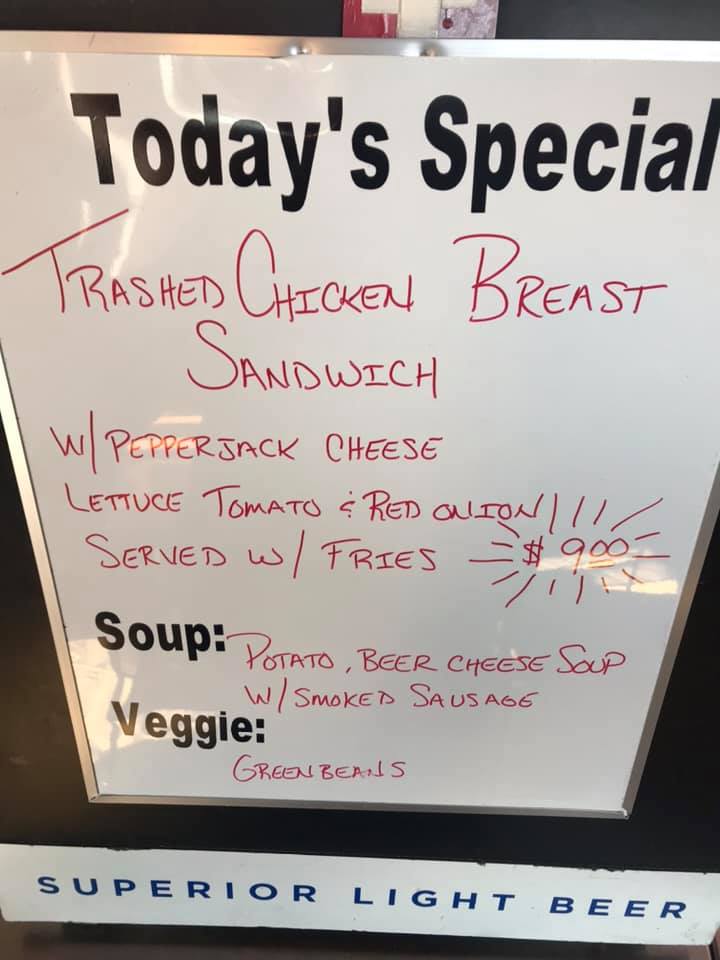 Today's Special
TRASHED CHICKEN BREAST
SANDWICH
W/ PEPPERJACK CHEESE
LETTUCE TOMATO & RED ONION
SERVED W/ FRIES $9.00
Soup: POTATO, BEER CHEESE SOUP
W/ SMOKED SAUSAGE
Veggie:
GREEN BEANS
SUPERIOR LIGHT BEER